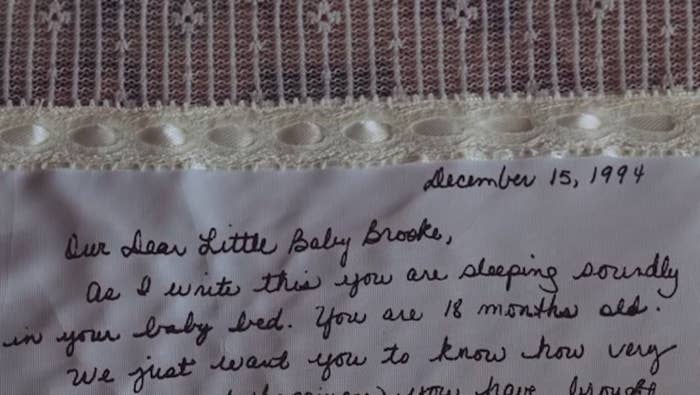 December 15, 1994
Our Dear Little Baby Brooke,
As I write this you are sleeping soundly
in your baby bed. You are 18 months old.
We just want you to know how very
you have brought